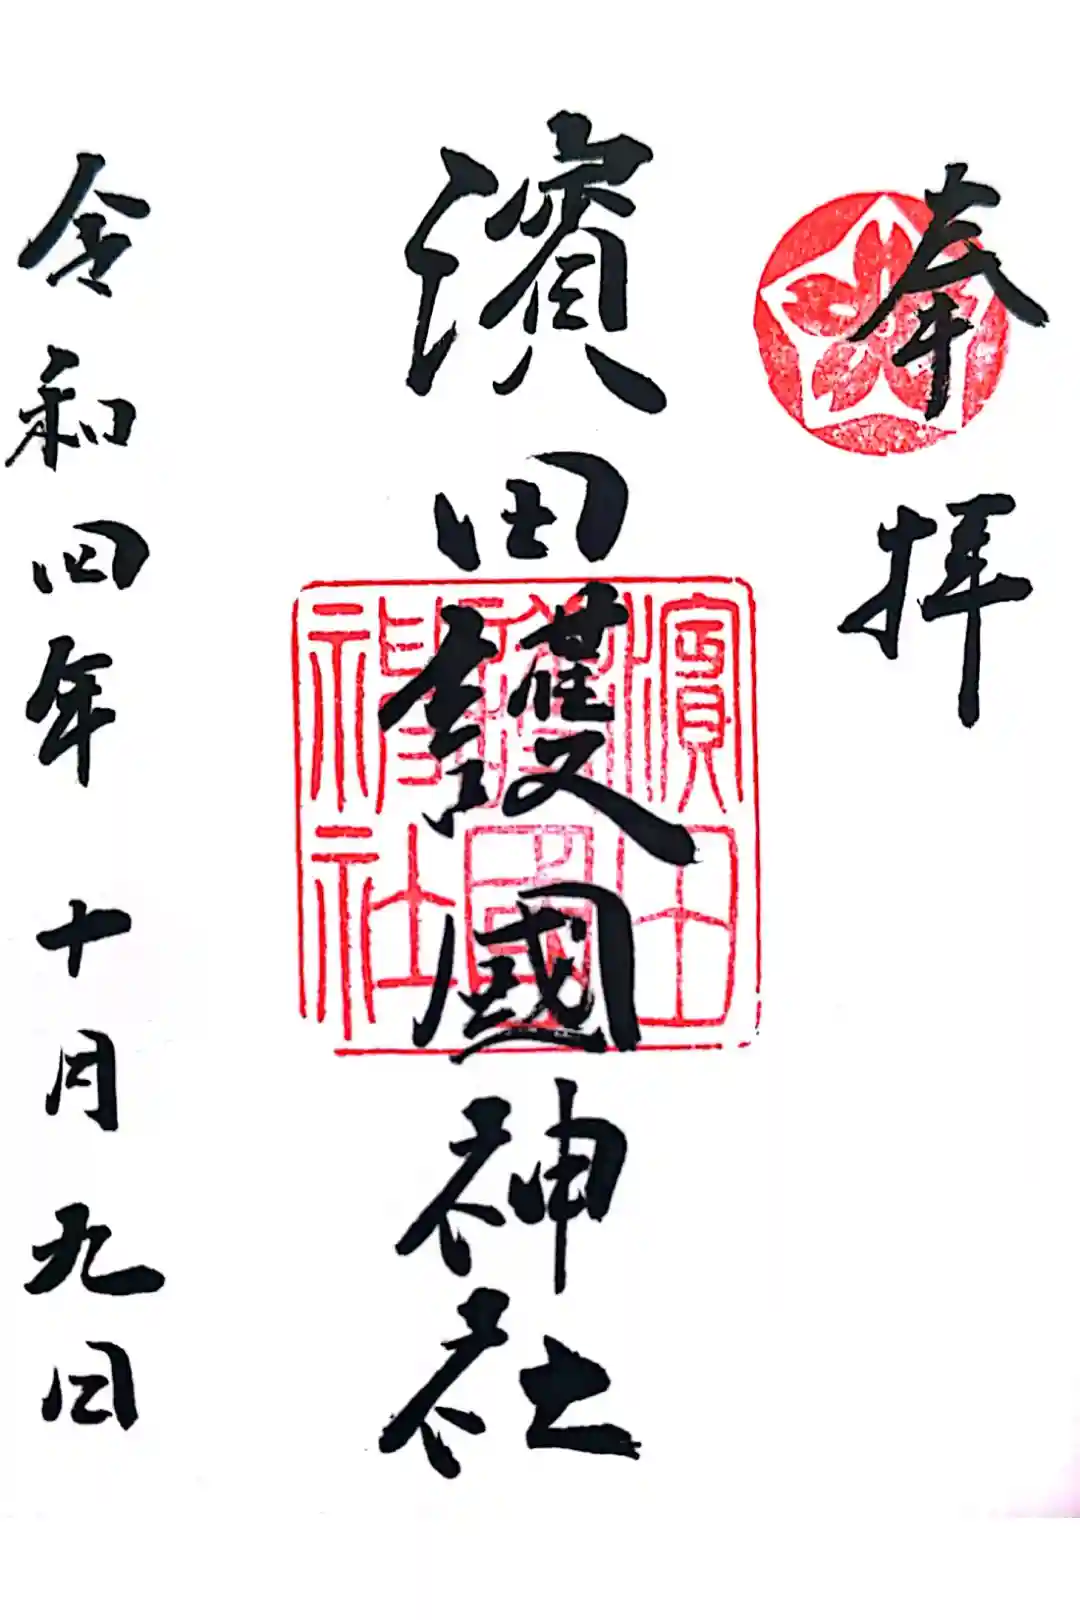 奉拝
濱田護國神社
濱田
護國
神社
令和四年十月九日